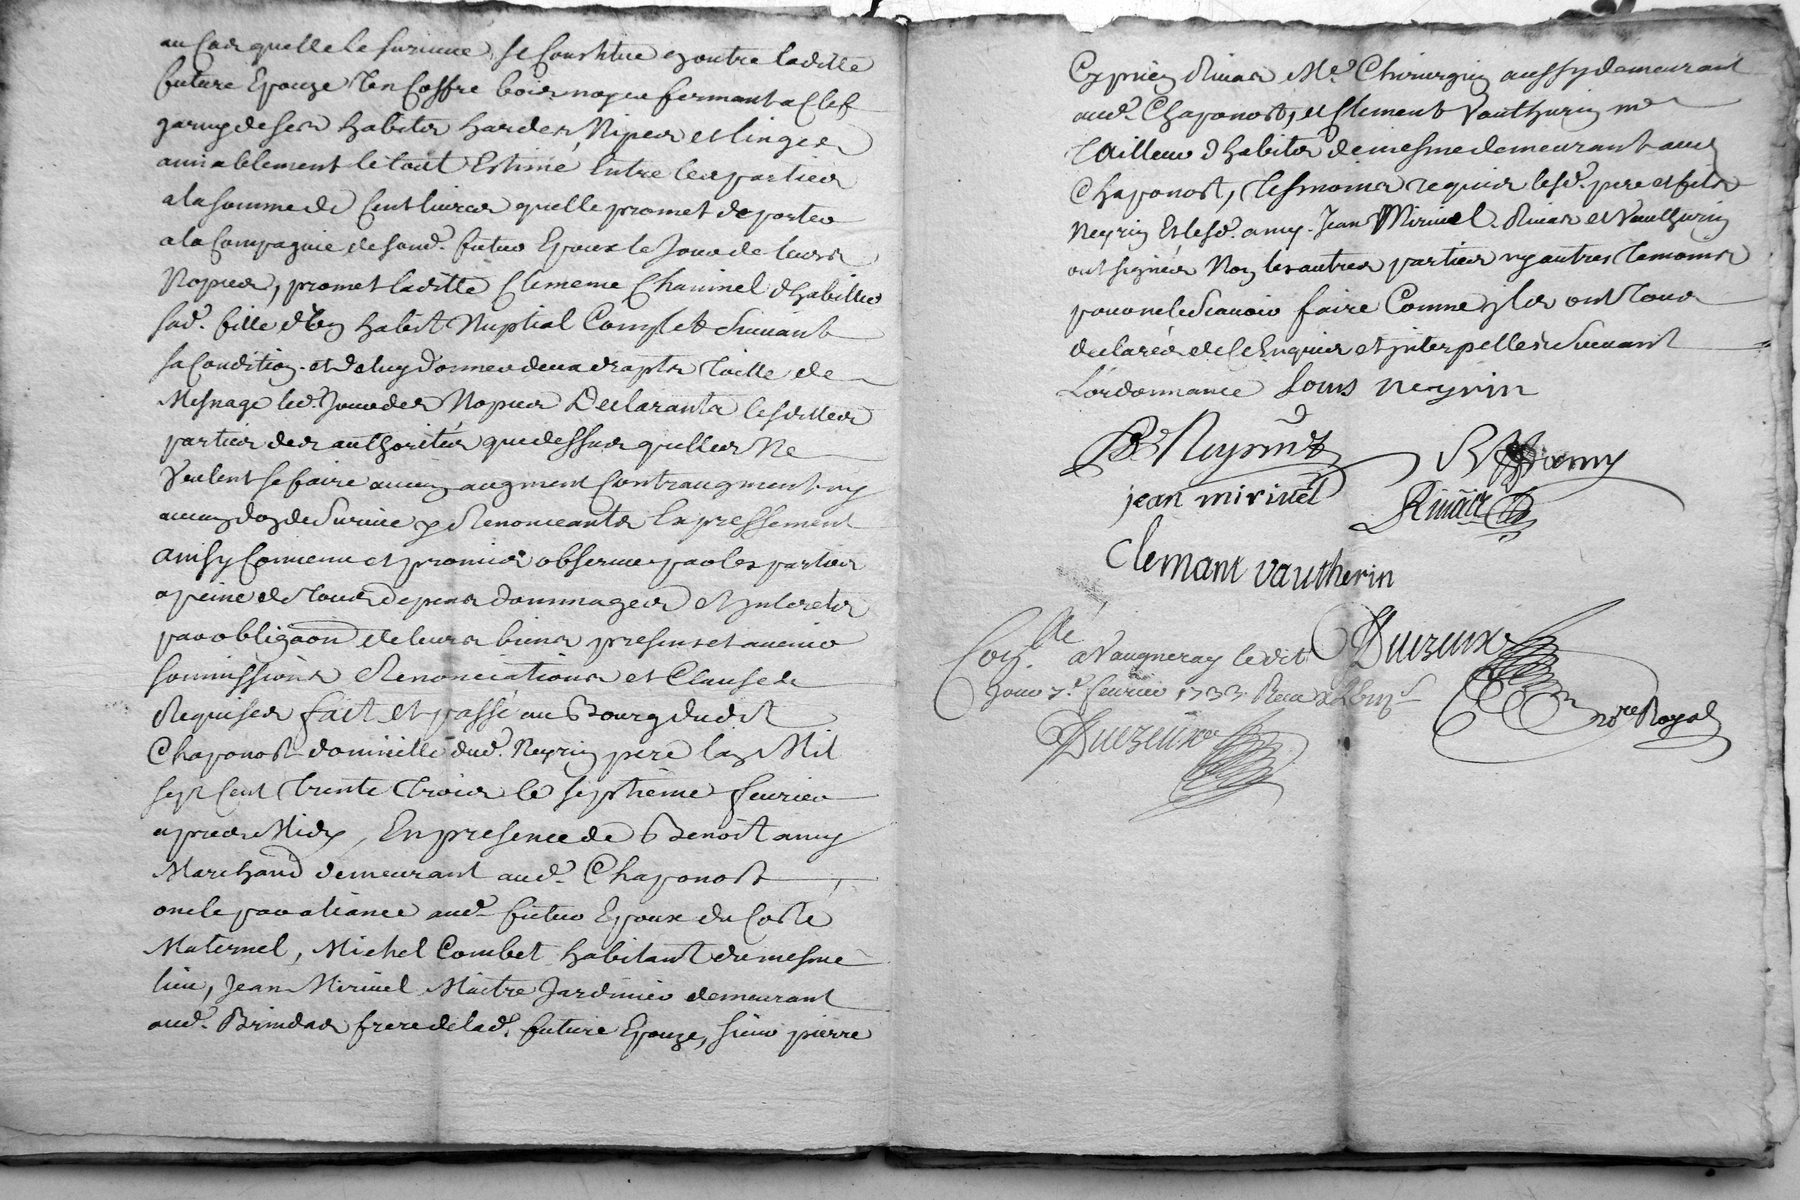 au Cas quelle le survive, se Constitue en outre laditte
future Epouze Un Coffre bois noyer fermant a Clef
garny de ses habits hardes, Nipes et linges
amiablement le tout Estimé, Entre les parties
a la somme de Cent livres quelle promet de porter
a la Compagnie de sond. futur Epoux le Jour de leurs
Nopces, promet laditte Clemence Chavinel d'habiller
sad. fille d'Un habit Nuptial Complet suivant
sa Condition et de luy donner deux draps toille de
Mesnage led. Jour des Nopces Declarants lesdittes
parties des authorités que dessus quelles Ne
Veulent se faire aucun augment Contraugment ny
aucun don de survie y Renonceants Expressement
ainsy Convenu et promis observer par les parties
a peine de tous depens dommages et Interets
par obligaon de leurs biens presents et avenir
sommissions Renonciations et Clauses
Requises fait et passé au Bourg dudit
Chaponost domicille dud. Neyrin pere lan Mil
sept Cent trente trois le septieme fevrier
apres Midy, En presence de Benoit amy
Marchand demeurant aud. Chaponost
oncle par aliance aud. futur Epoux du Costé
Maternel, Michel Combet habitant du mesme
lieu, Jean Mirinel Maitre Jardinier demeurant
aud. Brindas frere de lad. future Epouze, sieur pierre
Cyprien Rivas Me. Chirurgien aussy demeurant
aud. Chaponost, et Clement Vautherin me
tailleur d'habits de mesme demeurant aud.
Chaponost, tesmoins requis lesd. pere et fils
Neyrin Et lesd. amy, Jean Mirinel, Rivas et Vautherin
ont signés Non les autres parties ny autres temoins
pour ne le scavoir faire Comme yls ont tous
declarés de ce Enquis et interpellés suivant
L'ordonnance Louis neyrin
B Neyrin
B amy
jean mirinel
Rivas
Clemant vautherin
Con.llé a Vaugneray ledit
Jour 7e. fevrier 1733 Receu
Duezeux
nore Royal
Duezeux